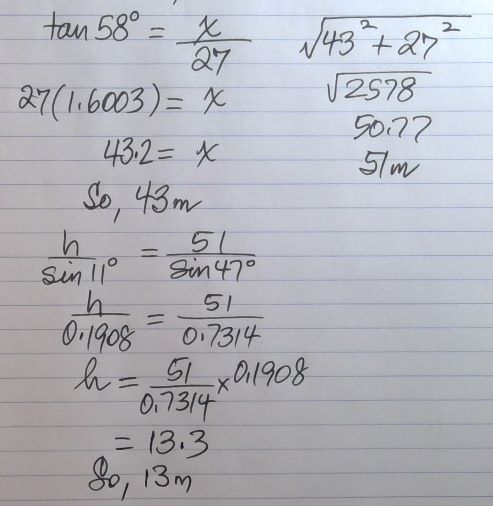 tan 58° = x/27
27(1.6003) = x
43.2 = x
So, 43m
√43² + 27²
√2578
50.77
51m
h/sin 11° = 51/sin 47°
h/0.1908 = 51/0.7314
h = 51/0.7314 × 0.1908
= 13.3
So, 13m